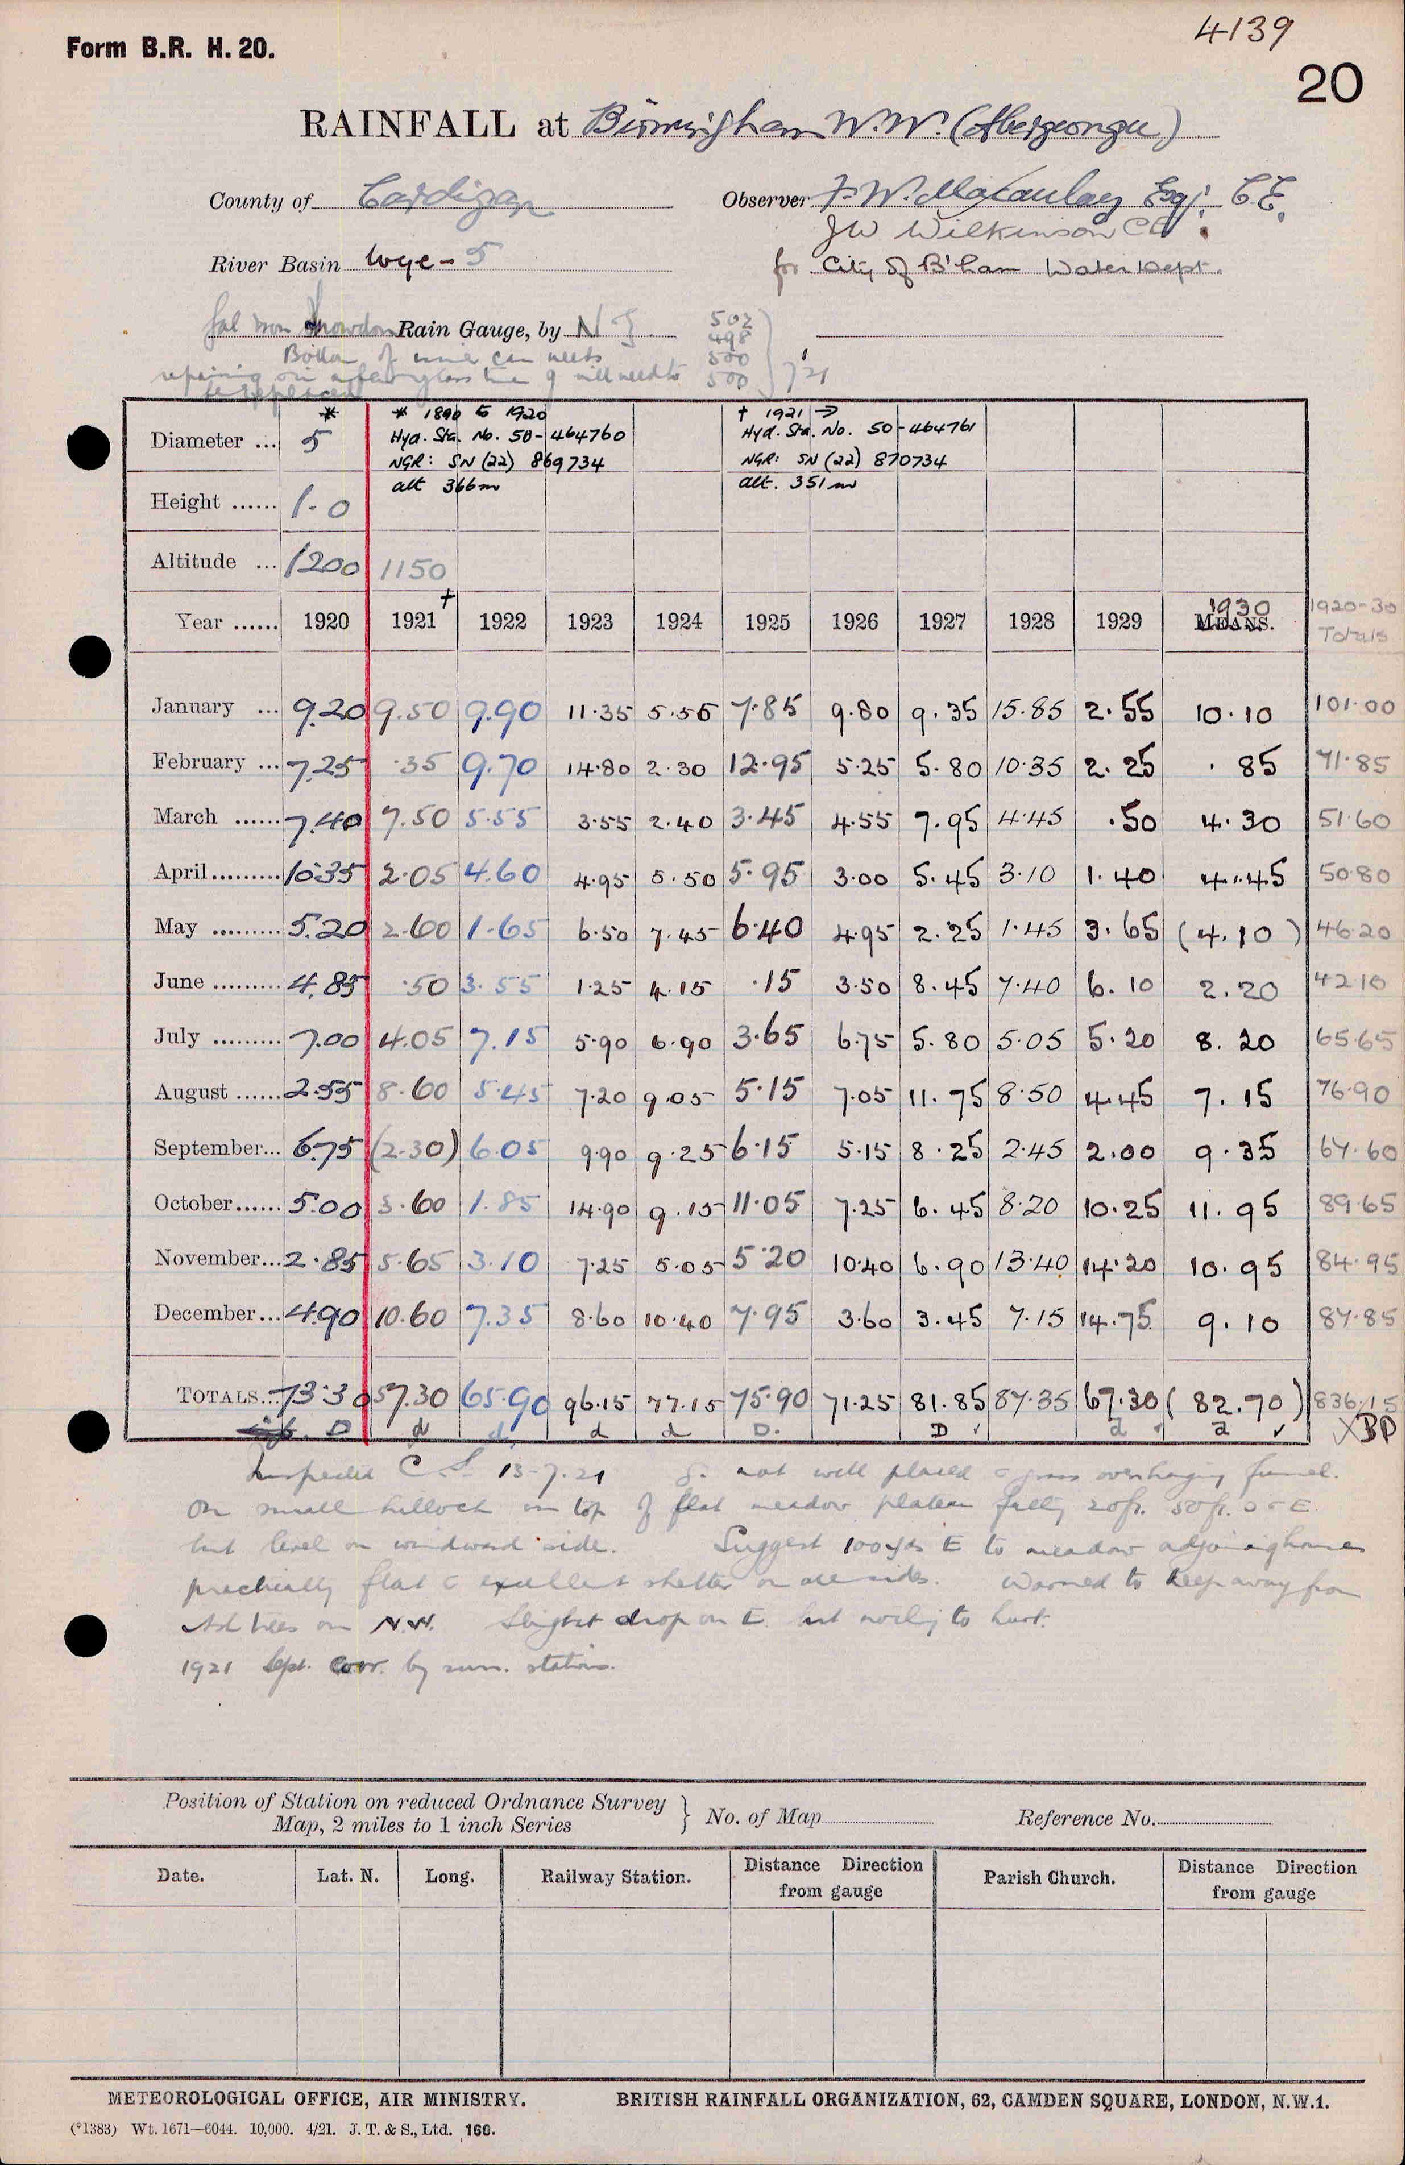 4139
Form B.R. H. 20.
20
RAINFALL at Birmingham W.W. (Abergwngu)
County of Cardigan
Observer F W. Macaulay Esqr. C.E.
JW Wilkinson CE
River Basin Wye - 5
for City of B'ham Water Dept.
Snowdon Rain Gauge, by N Z
502
498
500
500
7 '21
Bottom of inner can needs
repairing
Diameter ... 5 *
* 1890 to 1920
Hyd. Sta. No. 50-464760
NGR: SN (22) 869734
alt 366m
† 1921 →
Hyd. Sta. No. 50-464761
NGR: SN (22) 870734
alt. 351m
Height ...... 1-0
Altitude ... 1200 1150
Year ...... 1920 1921 † 1922 1923 1924 1925 1926 1927 1928 1929 1930 MEANS. 1920-30 Totals
January ... 9.20 9.50 9.90 11.35 5.55 7.85 9.80 9.35 15.85 2.55 10.10 101.00
February ... 7.25 .35 9.70 14.80 2.30 12.95 5.25 5.80 10.35 2.25 .85 71.85
March ...... 7.40 7.50 5.55 3.55 2.40 3.45 4.55 7.95 4.45 .50 4.30 51.60
April ......... 10.35 2.05 4.60 4.95 5.50 5.95 3.00 5.45 3.10 1.40 4.45 50.80
May ......... 5.20 2.60 1.65 6.50 7.45 6.40 4.95 2.25 1.45 3.65 (4.10) 46.20
June ......... 4.85 .50 3.55 1.25 4.15 .15 3.50 8.45 7.40 6.10 2.20 42.10
July ......... 7.00 4.05 7.15 5.90 6.90 3.65 6.75 5.80 5.05 5.20 8.20 65.65
August ...... 2.55 8.60 5.45 7.20 9.05 5.15 7.05 11.75 8.50 4.45 7.15 76.90
September... 6.75 (2.30) 6.05 9.90 9.25 6.15 5.15 8.25 2.45 2.00 9.35 67.60
October...... 5.00 3.60 1.85 14.90 9.15 11.05 7.25 6.45 8.20 10.25 11.95 89.65
November... 2.85 5.65 3.10 7.25 5.05 5.20 10.40 6.90 13.40 14.20 10.95 84.95
December... 4.90 10.60 7.35 8.60 10.40 7.95 3.60 3.45 7.15 14.75 9.10 87.85
TOTALS... 73.30 57.30 65.90 96.15 77.15 75.90 71.25 81.85 87.35 67.30 (82.70) 836.15
D d d d d D. D ✓ d ✓ d ✓ X BP
Inspected C S. 13-7.21 g. not well placed grass overhanging funnel.
On small hillock on top of flat meadow plateau falling 20ft. 50ft. S & E
but level on windward side. Suggest 100yds E to meadow adjoining house
practically flat excellent shelter on all sides. Warned to keep away from
Ash trees on N.W. Slight drop on E but nothing to hurt.
1921 Sept. corr. by surr. stations.
Position of Station on reduced Ordnance Survey Map, 2 miles to 1 inch Series } No. of Map Reference No.
Date. Lat. N. Long. Railway Station. Distance Direction from gauge Parish Church. Distance Direction from gauge
METEOROLOGICAL OFFICE, AIR MINISTRY. BRITISH RAINFALL ORGANIZATION, 62, CAMDEN SQUARE, LONDON, N.W.1.
(*1383) Wt. 1671—6044. 10,000. 4/21. J. T. & S., Ltd. 166.